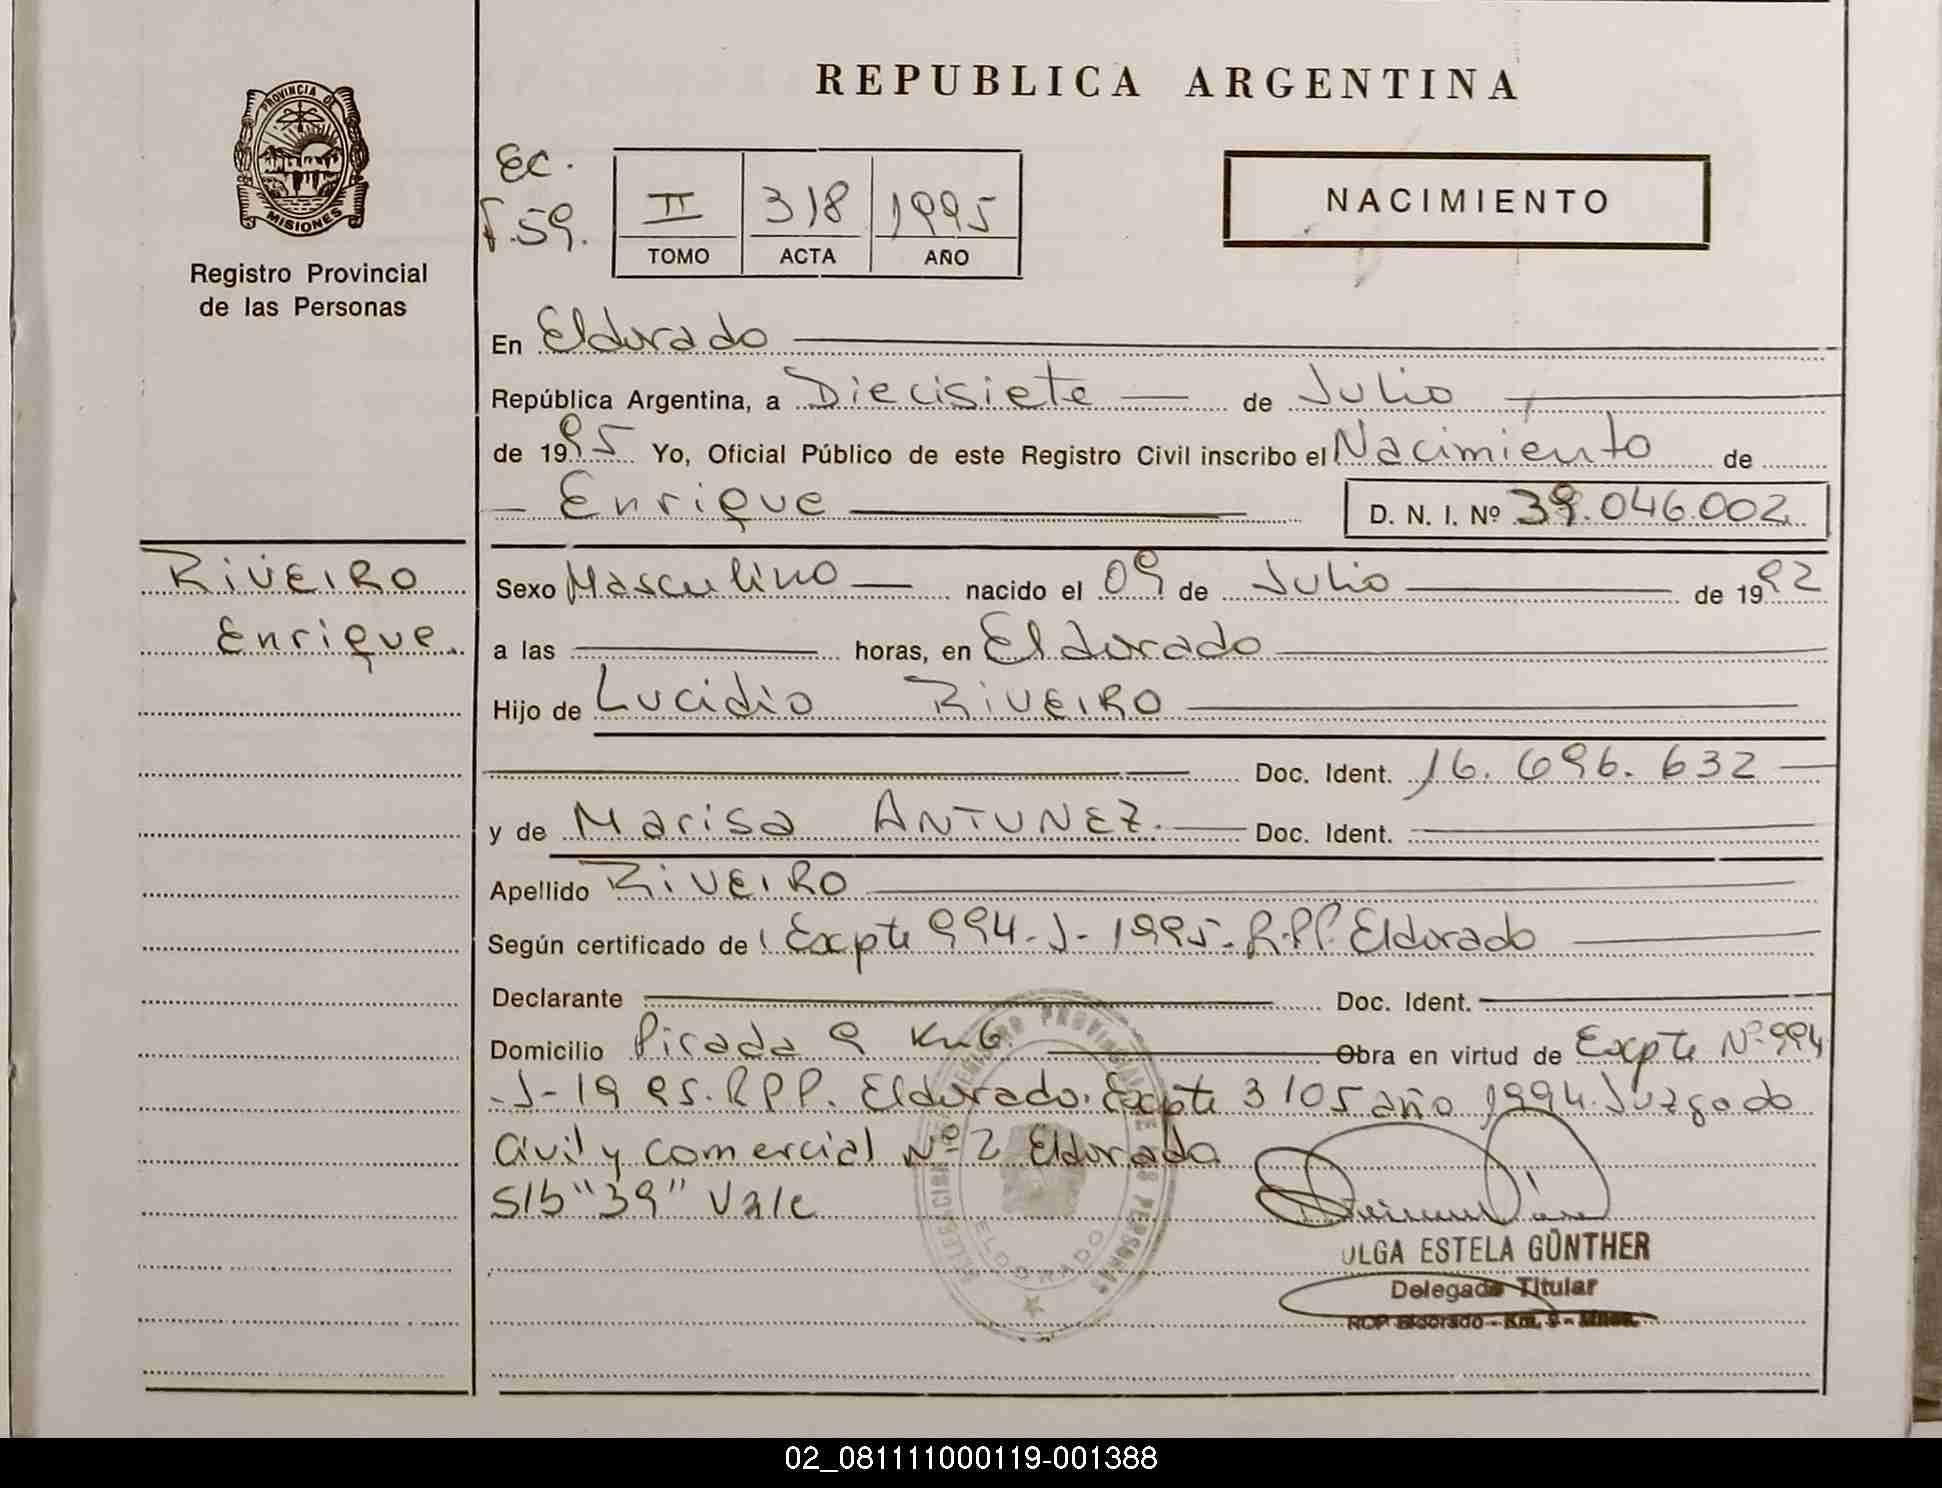 REPUBLICA ARGENTINA
PROVINCIA DE
MISIONES
Registro Provincial
de las Personas
Ec.
F.59.
II 318 1995
TOMO ACTA AÑO
NACIMIENTO
En Eldorado
República Argentina, a Diecisiete de Julio
de 1995 Yo, Oficial Público de este Registro Civil inscribo el Nacimiento de
Enrique D. N. I. Nº 39.046.002
RiVEIRO
Enrique.
Sexo Masculino nacido el 09 de Julio de 1992
a las horas, en Eldorado
Hijo de Lucidio RiVEIRO
Doc. Ident. 16.696.632
y de Marisa ANTUNEZ. Doc. Ident.
Apellido RiVEIRO
Según certificado de Expte 994-J-1995-R.P.P. Eldorado
Declarante Doc. Ident.
Domicilio Picada 9 Km6. Obra en virtud de Expte Nº 994
-J-1995.R.P.P. Eldorado. Expte 3105 año 1994. Juzgado
Civil y comercial Nº 2 Eldorado
S/b "39" Vale
DELEGACION REGISTRO PROVINCIAL DE LAS PERSONAS
ELDORADO
OLGA ESTELA GÜNTHER
Delegado Titular
RCP Eldorado - Km. 9 - Mnes.
02_081111000119-001388